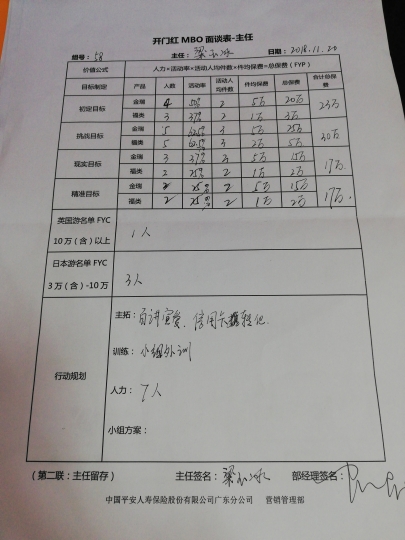 开门红 MBO 面谈表-主任
组号： 58 主任： 梁 日期： 2018.11.20
价值公式 人力×活动率×活动人均件数×件均保费=总保费（FYP）
目标制定 产品 人数 活动率 活动人均件数 件均保费 总保费 合计总保费
初定目标 金瑞 4 50% 2 5万 20万 23万
福类 3 37% 2 1万 3万
挑战目标 金瑞 5 62.5% 3 5万 25万 30万
福类 5 62.5% 3 2万 5万
现实目标 金瑞 3 37% 3 5万 15万 17万
福类 2 25% 2 1万 2万
精准目标 金瑞 2 25% 2 5万 15万 17万
福类 2 25% 2 1万 2万
英国游名单 FYC
10 万（含）以上 1人
日本游名单 FYC
3 万（含）-10万 3人
行动规划
主拓： 信用卡 转化
训练： 小组外训
人力： 7人
小组方案：
（第二联：主任留存） 主任签名： 梁 部经理签名：
中国平安人寿保险股份有限公司广东分公司 营销管理部